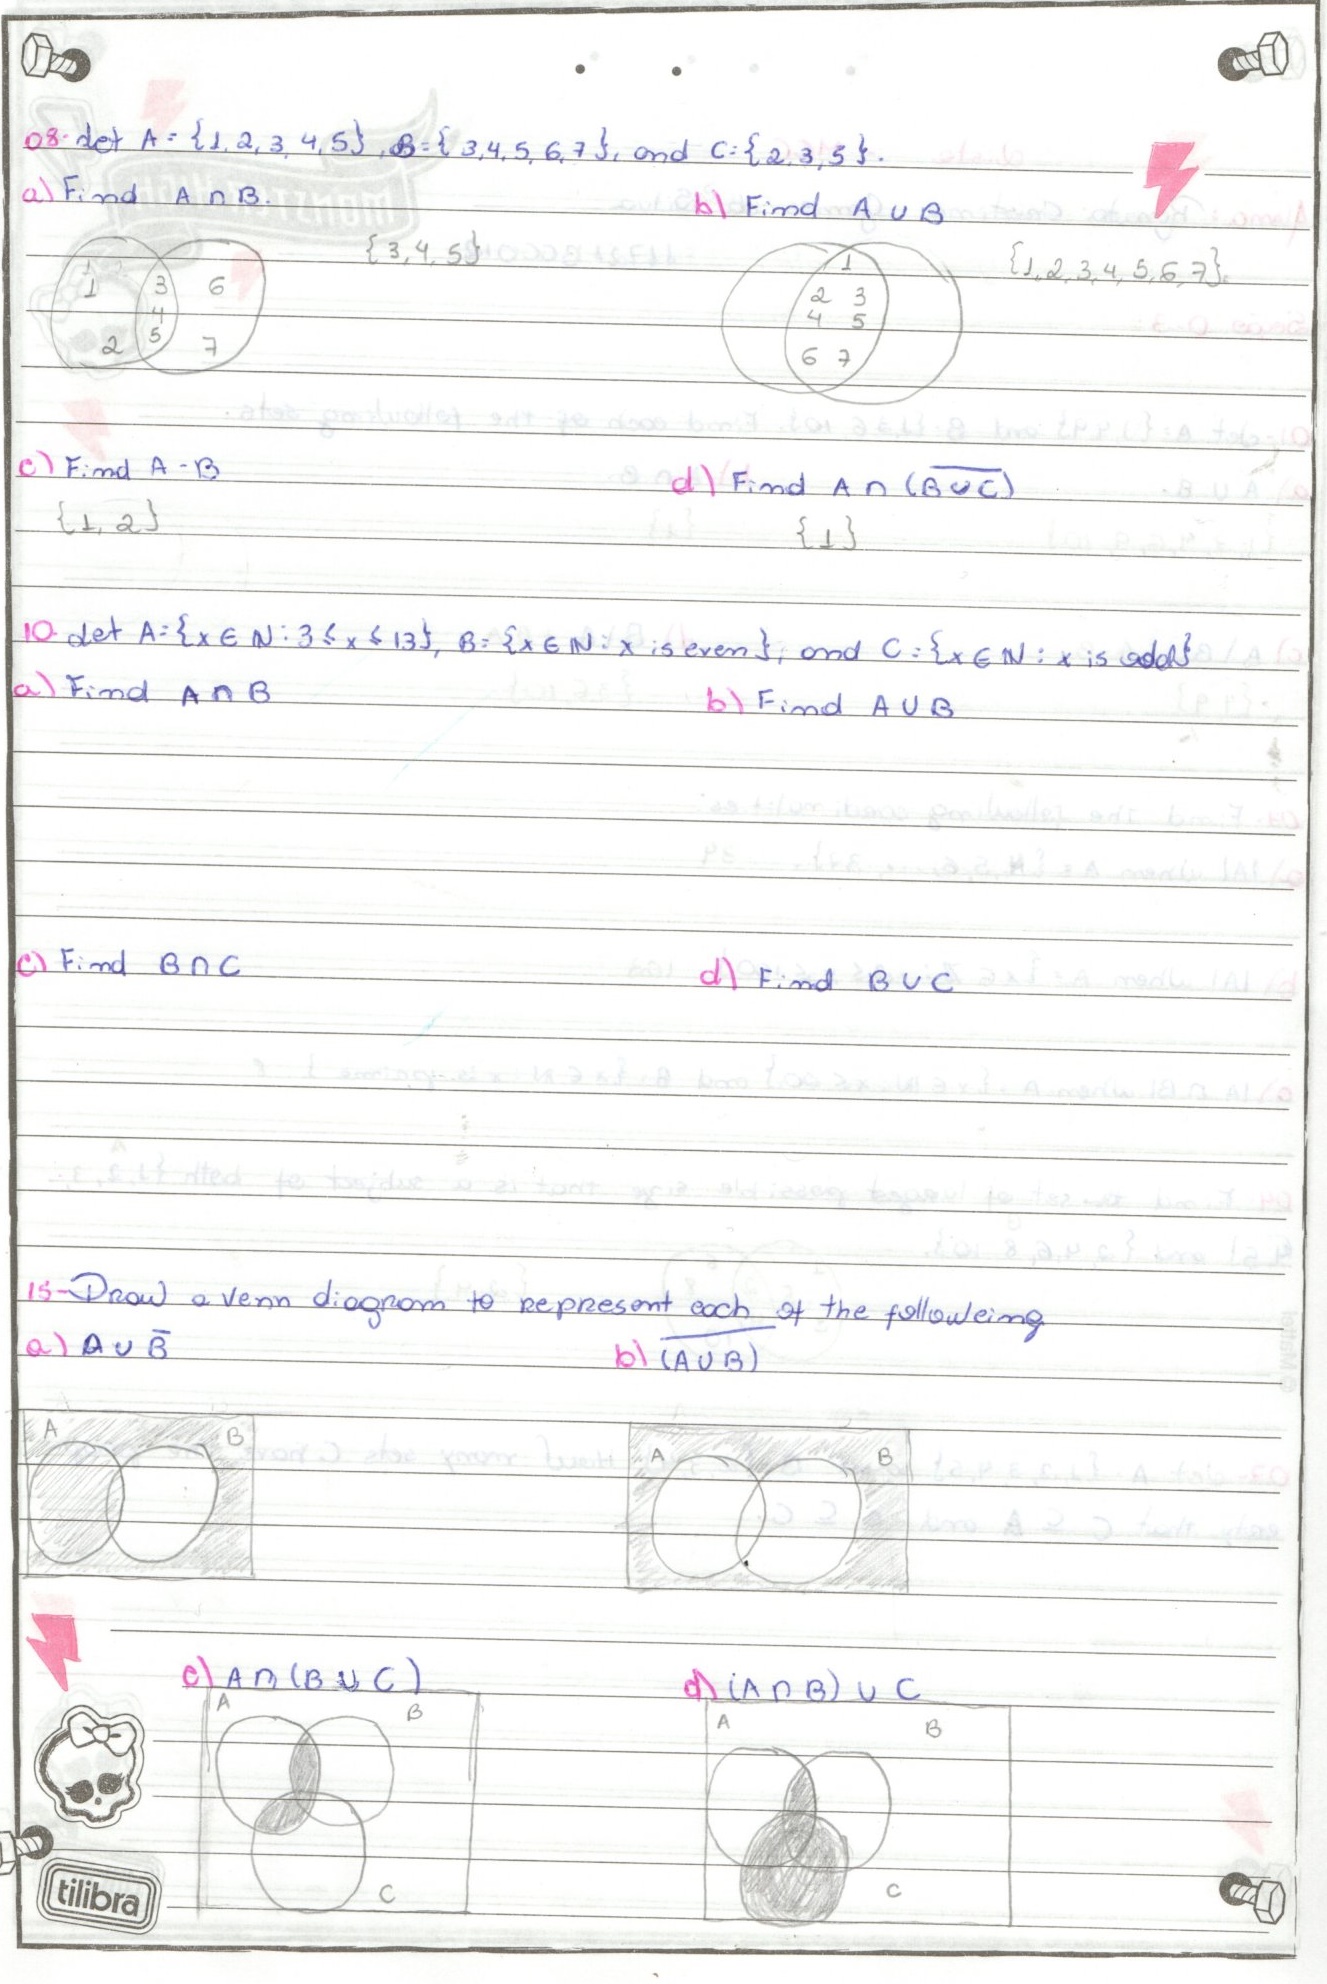 08- Let A = {1, 2, 3, 4, 5}, B = {3, 4, 5, 6, 7}, and C = {2, 3, 5}.
a) Find A ∩ B. b) Find A ∪ B
{3, 4, 5} {1, 2, 3, 4, 5, 6, 7}.
1 3 6 1
4 2 3
5 4 5
2 7 6 7
c) Find A - B d) Find A ∩ (B̅ ∪̅ C̅)
{1, 2} {1}
10- Let A = {x ∈ N : 3 ≤ x ≤ 13}, B = {x ∈ N : x is even}, and C = {x ∈ N : x is odd}
a) Find A ∩ B b) Find A ∪ B
c) Find B ∩ C d) Find B ∪ C
15- Draw a venn diagram to represent each of the followeing
a) A ∪ B̅ b) (A̅ ∪̅ B̅)
A B A B
c) A ∩ (B ∪ C) d) (A ∩ B) ∪ C
A B A B
C C
tilibra